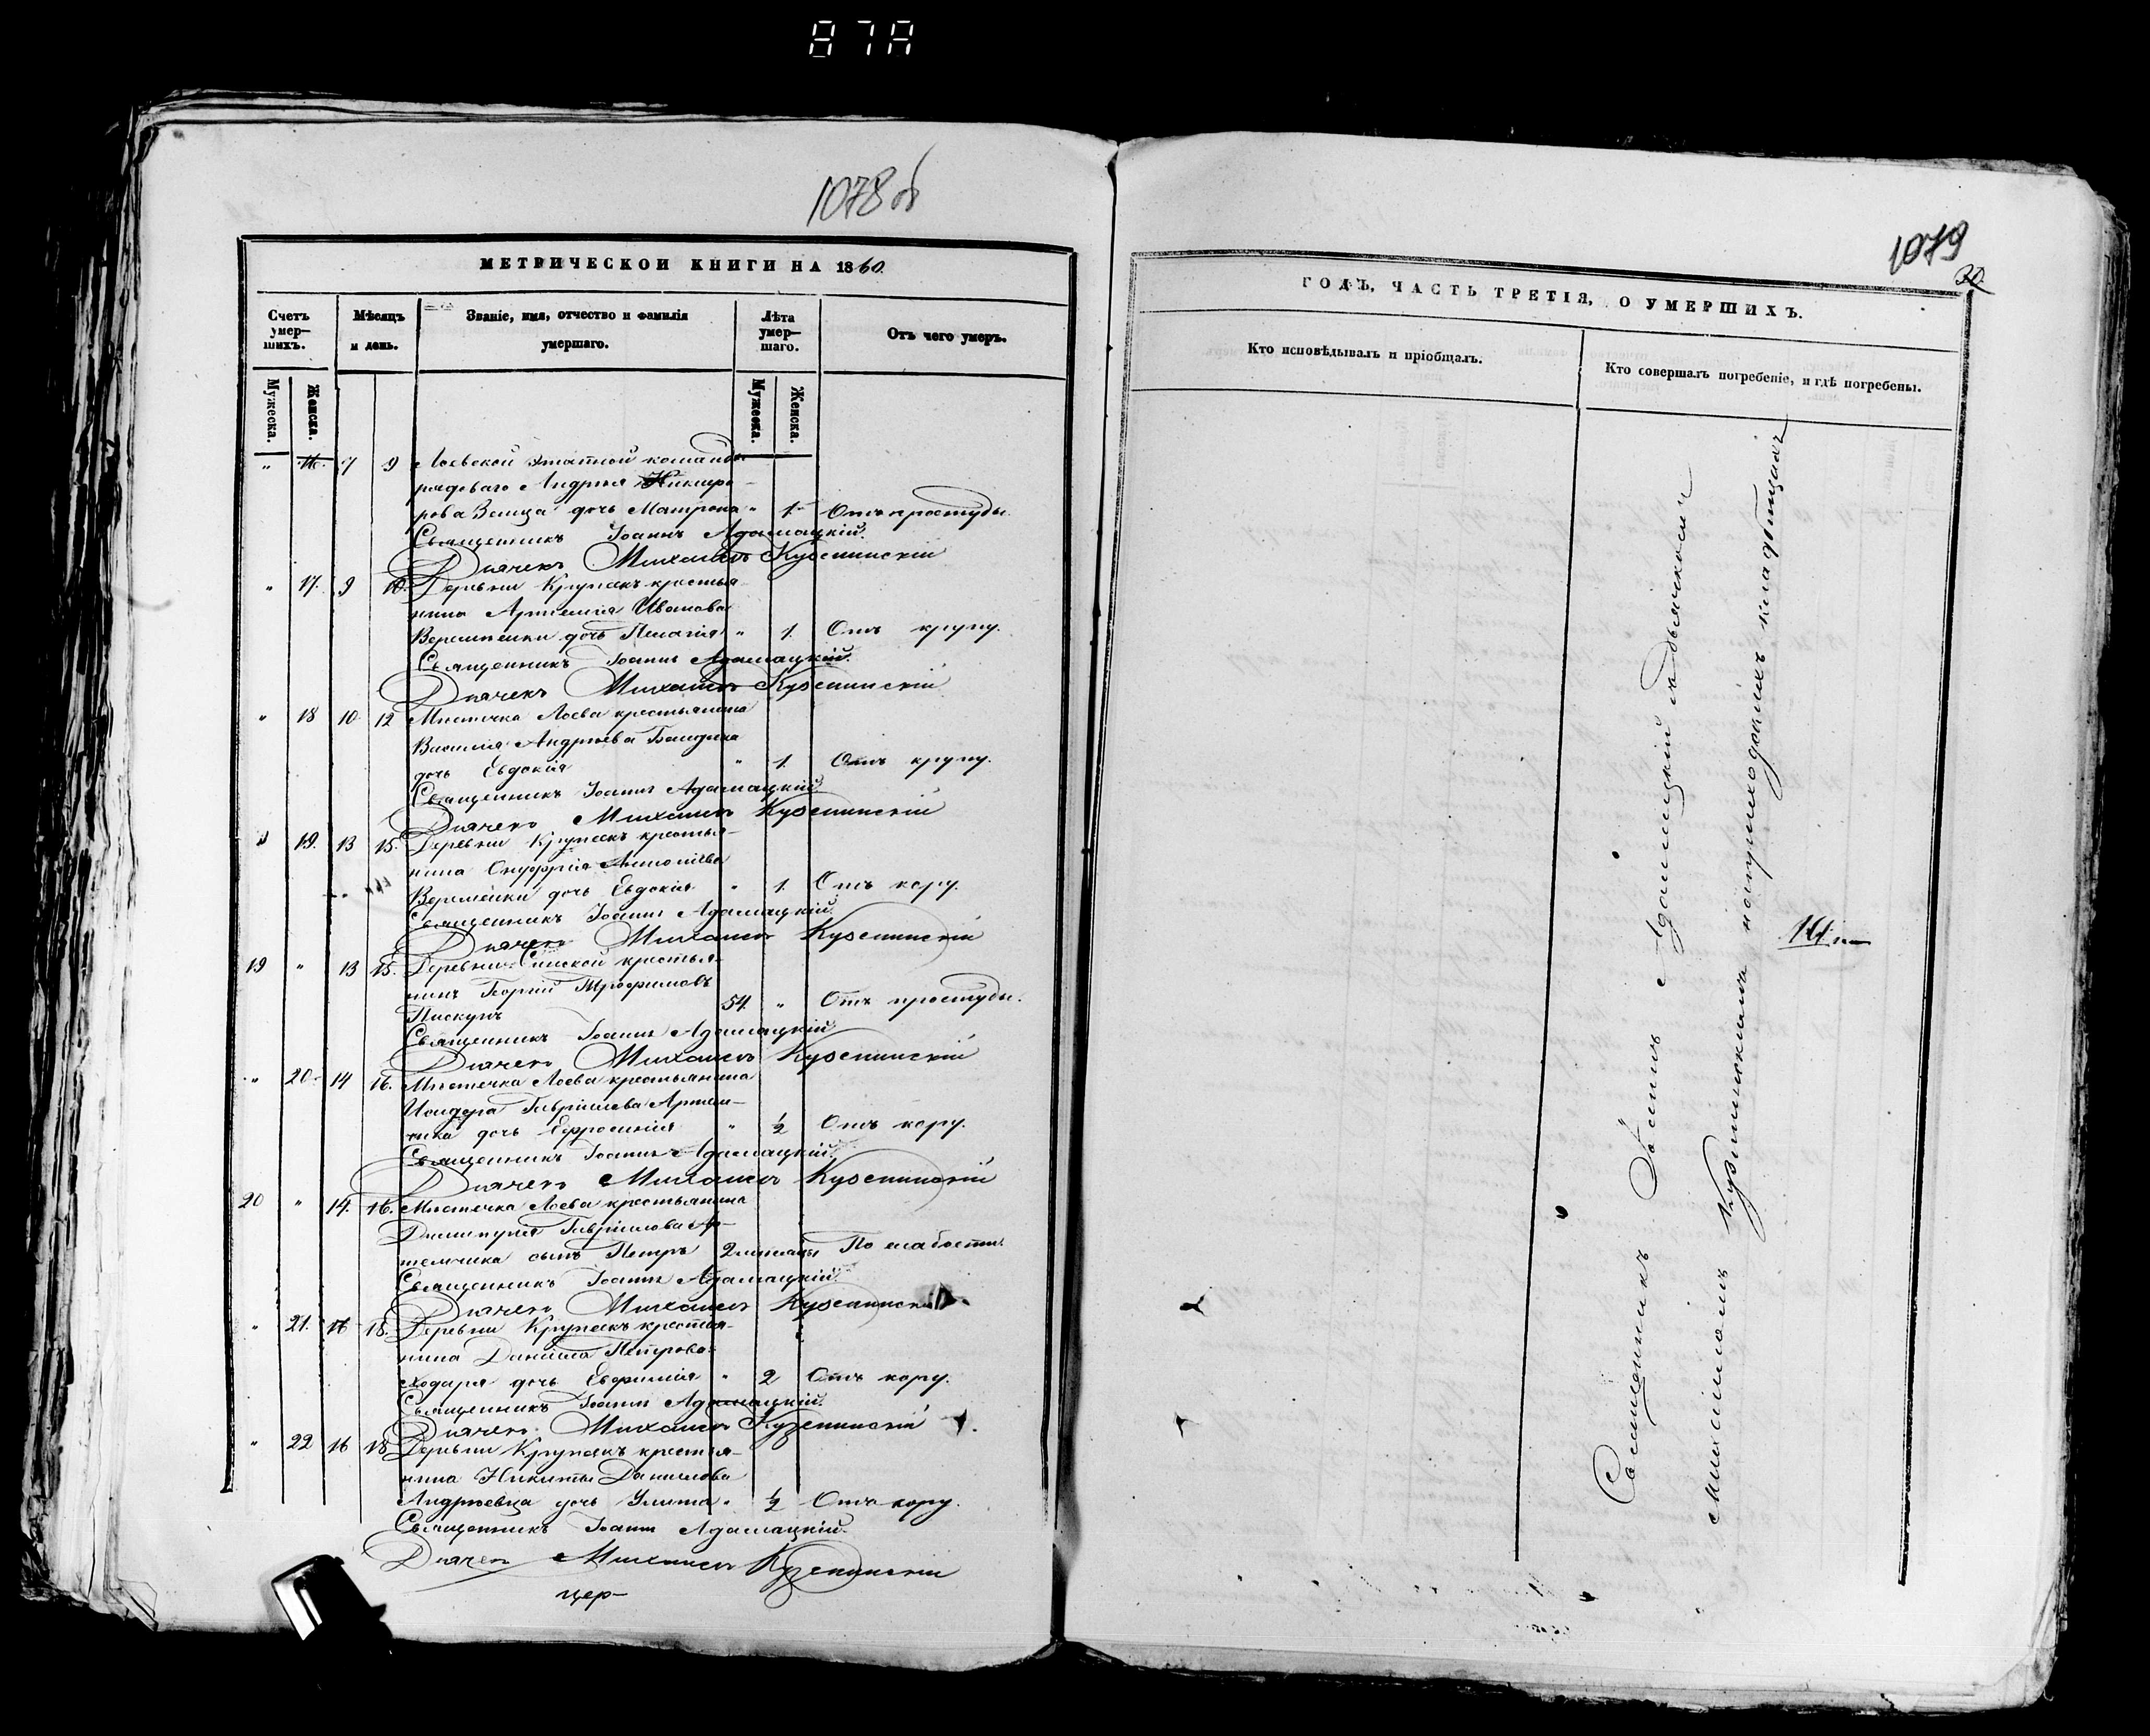 87A
1078об
МЕТРИЧЕСКОЙ КНИГИ НА 1860.
Счетъ умер–шихъ.
Мѣсяцъ и день.
Званіе, имя, отчество и фамилія умершаго.
Лѣта умер–шаго.
Отъ чего умеръ.
Мужеска.
Женска.
Мужеска.
Женска.
" 16. 7 9 Лоевской этатной команды
рядоваго Андрея
рова дочь Матрона " 1 Отъ простуды.
Священникъ Іоаннъ Адамацкій.
Дьячекъ Михаилъ
" 17. 9 10. Деревни Крупекъ крестья–
нина Артемія Иванова
Веремейки дочь Пелагія " 1. Отъ крупу.
Священникъ Іоаннъ Адамацкій.
Дьячекъ Михаилъ
" 18 10 12 Мѣстечка Лоева крестьянина
Василія Андреева
дочь Евдокія " 1. Отъ крупу.
Священникъ Іоаннъ Адамацкій
Дьячекъ Михаилъ
" 19. 13 15. Деревни Крупекъ крестья–
нина Онуфрія
Веремейки дочь Евдокія " 1. Отъ кору.
Священникъ Іоаннъ Адамацкій.
Дьячекъ Михаилъ
19 " 13 15. Деревни крестья–
нинъ Георгій Трофимовъ
Пискунъ 54. " Отъ простуды.
Священникъ Іоаннъ Адамацкій
Дьячекъ Михаилъ
" 20 14 16. Мѣстечка Лоева крестьянина
Исидора Гавріилова Артем–
чика дочь Ефросинія " ½ Отъ кору.
Священникъ Іоаннъ Адамацкій.
Дьячекъ Михаилъ
20 " 14. 16. Мѣстечка Лоева крестьянина
Димитрія Гавріилова Ар–
темчика сынъ Петръ 2 мѣсяцы По слабости.
Священникъ Іоаннъ Адамацкій
Дьячекъ Михаилъ
" 21. 16 18. Деревни Крупекъ крестья–
нина Даніила Петрова
Ходаря дочь Евфимія " 2 Отъ кору.
Священникъ Іоаннъ Адамацкій.
Дьячекъ Михаилъ
" 22 16 18 Деревни Крупекъ крестья–
нина Никиты Данилова
Андреевца дочь Улита " ½ Отъ кору.
Священникъ Іоаннъ Адамацкій.
Дьячекъ Михаилъ
цер–
1079
30.
ГОДЪ, ЧАСТЬ ТРЕТІЯ, О УМЕРШИХЪ.
Кто исповѣдывалъ и пріобщалъ.
Кто совершалъ погребеніе, и гдѣ погребены.
Священникъ Іоаннъ Адамацкій съ дьячкомъ
Михаиломъ на приходскихъ кладбищахъ